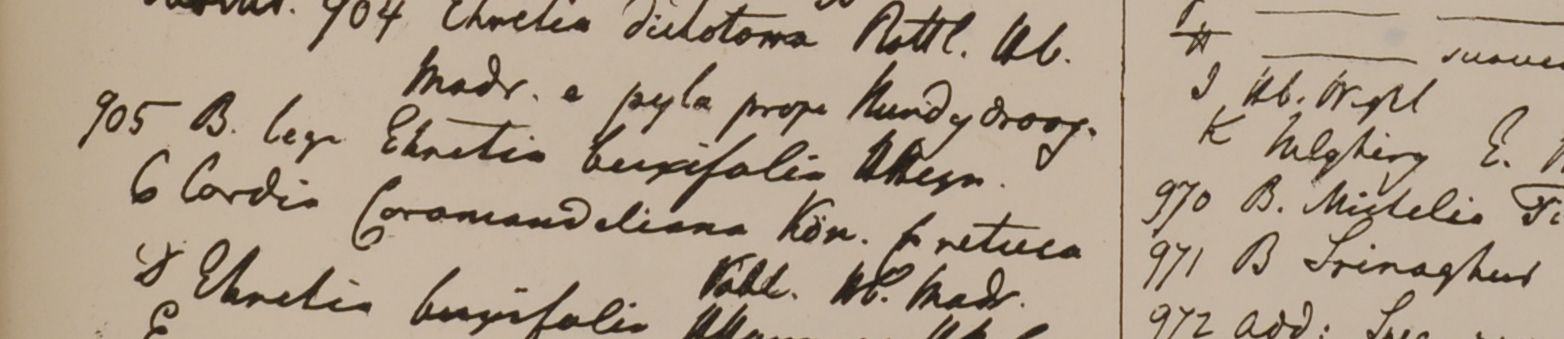 904 Ehretia dichotoma Rottl. Hb.
Madr. e pyla prope Nundydroog.
905 B. lege Ehretia buxifolia
C Cordia Coromandeliana Kön. fr retusa
Vahl. Hb. Madr.
D Ehretia buxifolia
E
H
I Hb. Wight
K Nilghiry E.
970 B. Michelia
971 B Srinaghur
972 add: